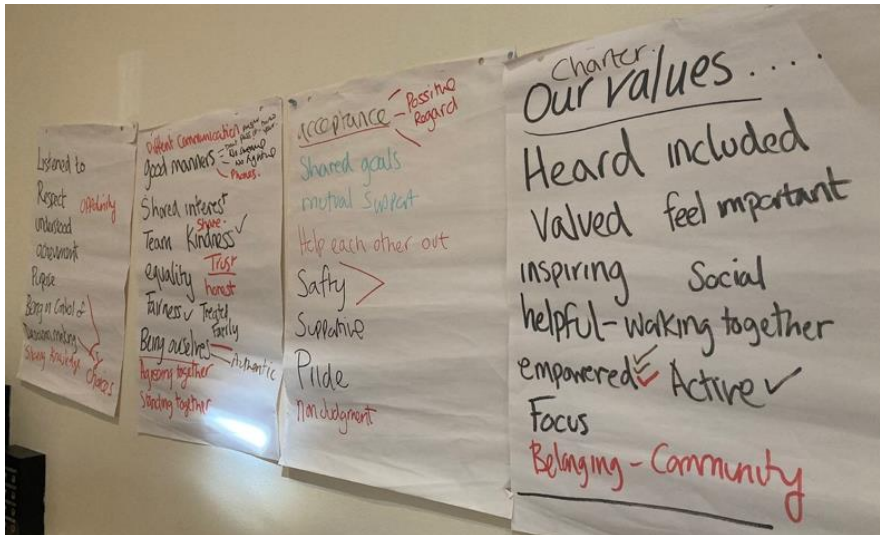 Listened to
Respect oppdinity
understood
acheivment
Purpose
Being in Control of
Decision making
Sharing Knowledge Choices
Different Communication
good manners
No language
Phones.
Shared interest
share.
Team Kindness ✓
Trust
equality
honest
Fairness ✓ Treated Fairly
Being ourselves - Authentic
Agreeing together
Standing together
acceptance
Possitive
Regard
Shared goals
mutual support
Help each other out
Safty
Suppative
Pride
non Judgment
Charter.
Our values ....
Heard included
Valued feel important
inspiring Social
helpful - working together
empowered ✓ Active ✓
Focus
Belonging - Community